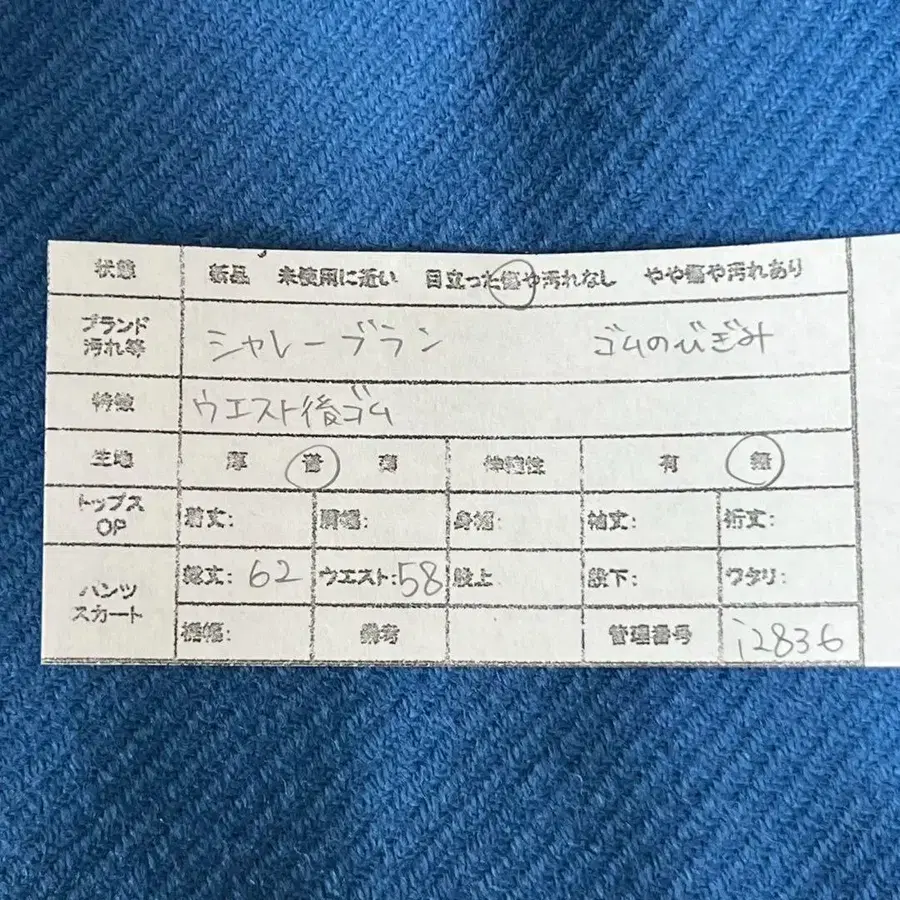 状態 新品 未使用に近い 目立った傷や汚れなし やや傷や汚れあり
ブランド
汚れ等 シャレーブラン ゴムのびぎみ
特徴 ウエスト後ゴム
生地 厚 普 薄 伸縮性 有 無
トップス
OP 着丈: 肩幅: 身幅: 袖丈: 裄丈:
パンツ
スカート 総丈: 62 ウエスト: 58 股上 股下: ワタリ:
裾幅: 備考 管理番号 i2836